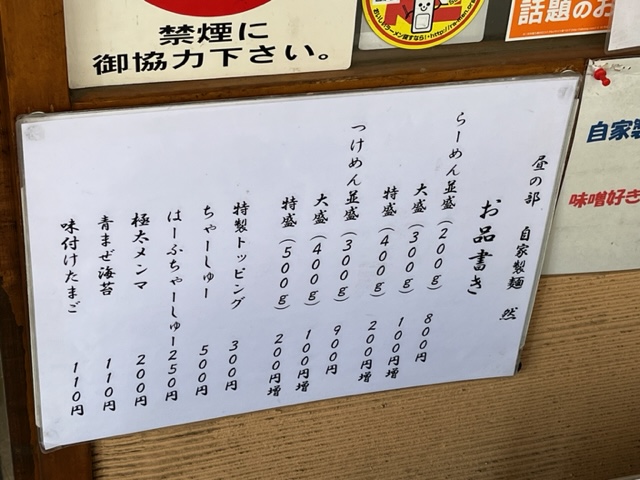 禁煙に
御協力下さい。
話題のお
自家製
味噌好き
昼の部 自家製麺 然
お品書き
らーめん並盛(200g) 800円
大盛(300g) 100円増
特盛(400g) 200円増
つけめん並盛(300g) 900円
大盛(400g) 100円増
特盛(500g) 200円増
特製トッピング 300円
ちゃーしゅー 500円
はーふちゃーしゅー250円
極太メンマ 200円
青まぜ海苔 110円
味付けたまご 110円